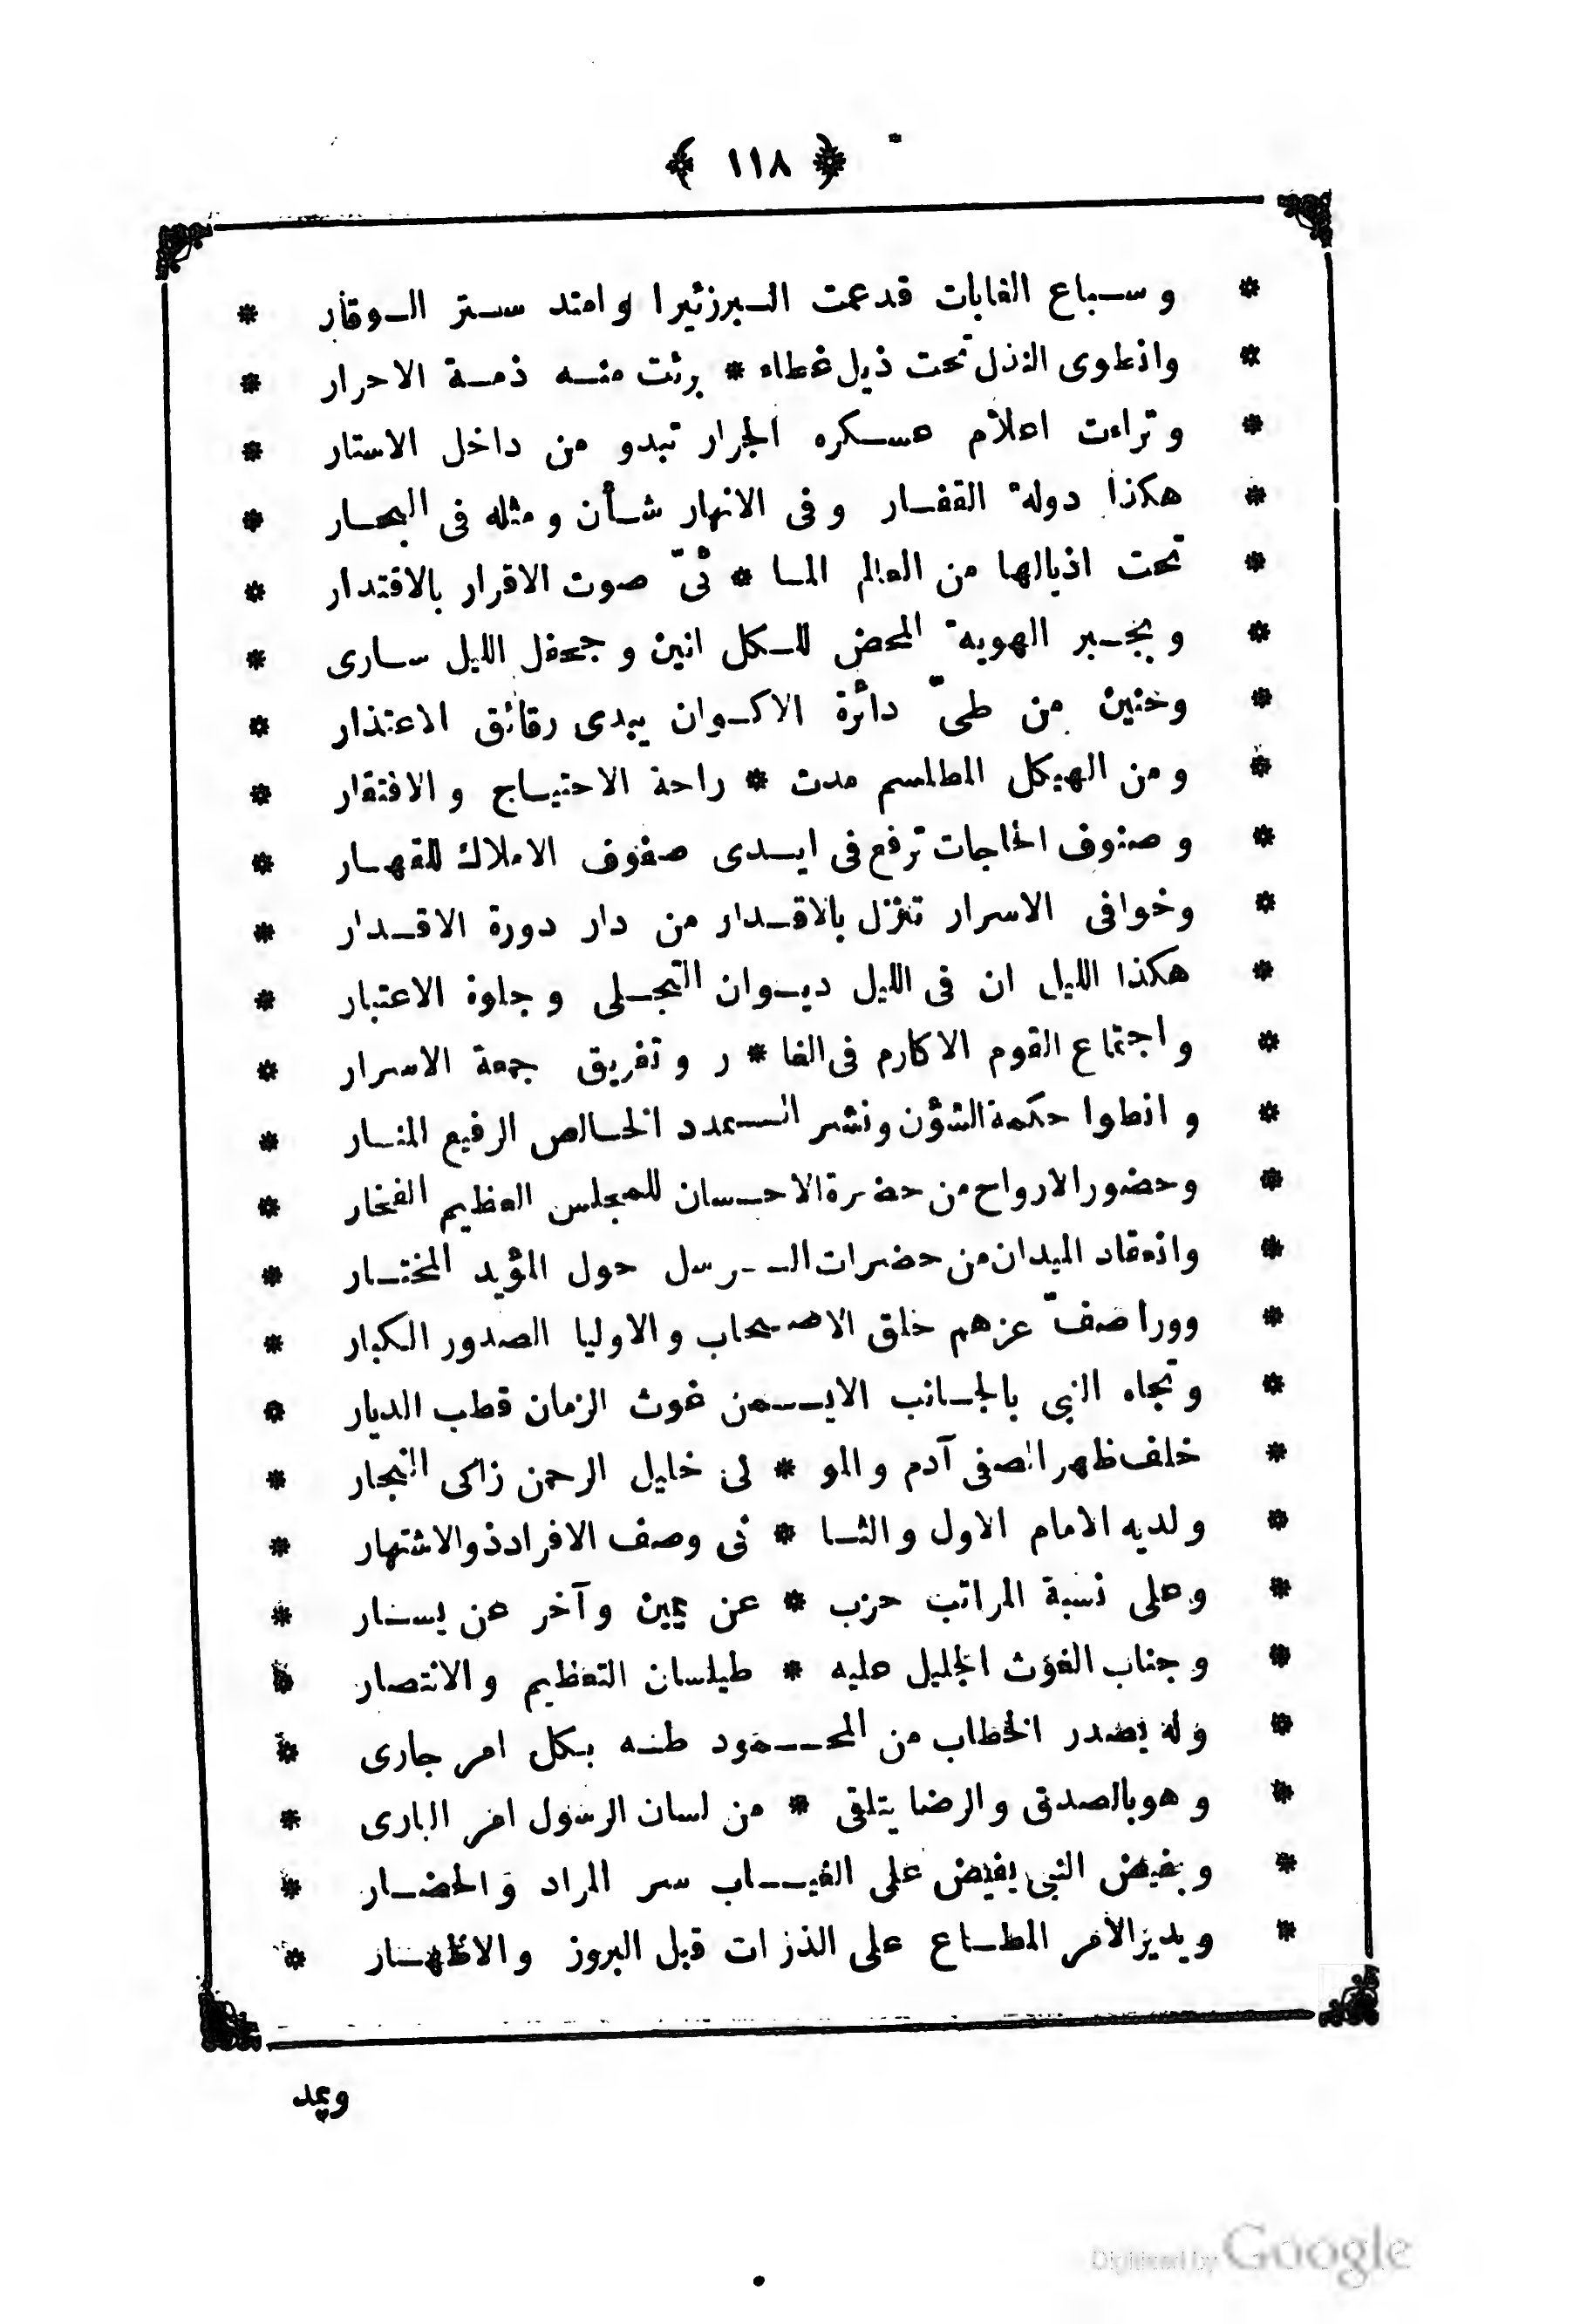 ﴿ ١١٨ ﴾
* وسباع الغابات قد عمت البر زئيرا وامتد ستر الوقار *
* وانطوى النذل تحت ذيل غطاء * برئت منه ذمة الاحرار *
* وتراءت اعلام عسكره الجرار تبدو من داخل الاستار *
* هكذا دولة القفار وفى الانهار شأن ومثله فى البحار *
* تحت اذيالها من العالم الما * ئىّ صوت الاقرار بالاقتدار *
* وبجبر الهوية المحض للكل انين وجحفل الليل سارى *
* وحنين من طىّ دائرة الاكوان يبدى رقائق الاعتذار *
* ومن الهيكل المطلسم مدت * راحة الاحتياج والافتقار *
* وصنوف الحاجات ترفع فى ايدى صفوف الاملاك للقهار *
* وخوافى الاسرار تنزل بالاقدار من دار دورة الاقدار *
* هكذا الليل ان فى الليل ديوان التجلى وجلوة الاعتبار *
* واجتماع القوم الاكارم فى الغا * ر وتفريق جمعة الاسرار *
* وانطوا حكمة الشؤن ونشر المدد الخالص الرفيع المنار *
* وحضور الارواح من حضرة الاحسان للمجلس العظيم الفخار *
* وانعقاد الميدان من حضرات الرسل حول المؤيد المختار *
* وورا صفّ عزهم خلق الاصحاب والاوليا الصدور الكبار *
* وتجاه النبى بالجانب الايمن غوث الزمان قطب الديار *
* خلف ظهر الصفى آدم والمو * لى خليل الرحمن زاكى النجار *
* ولديه الامام الاول والثا * نى وصف الافراد ذو الاشتهار *
* وعلى نسبة المراتب حزب * عن يمين وآخر عن يسار *
* وجناب الغوث الجليل عليه * طيلسان التعظيم والانتصار *
* وله يصدر الخطاب من المحمود طه بكل امر جارى *
* وهو بالصدق والرضا يتلقى * من لسان الرسول امر البارى *
* وبفيض النبى يفيض على الغياب سر المراد والحضار *
* ويدير الأمر المطاع على الذرات قبل البروز والاظهار *
ويمد
Digitized by Google